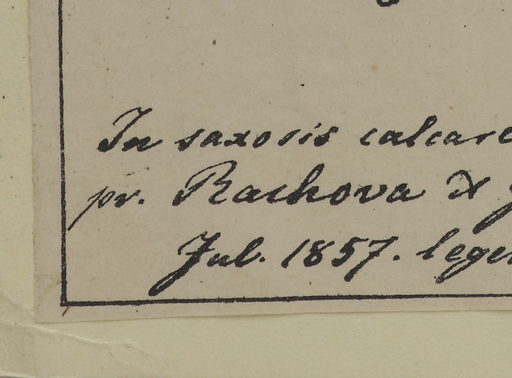 In saxosis calcare
pr. Rachova &
Jul. 1857. lege